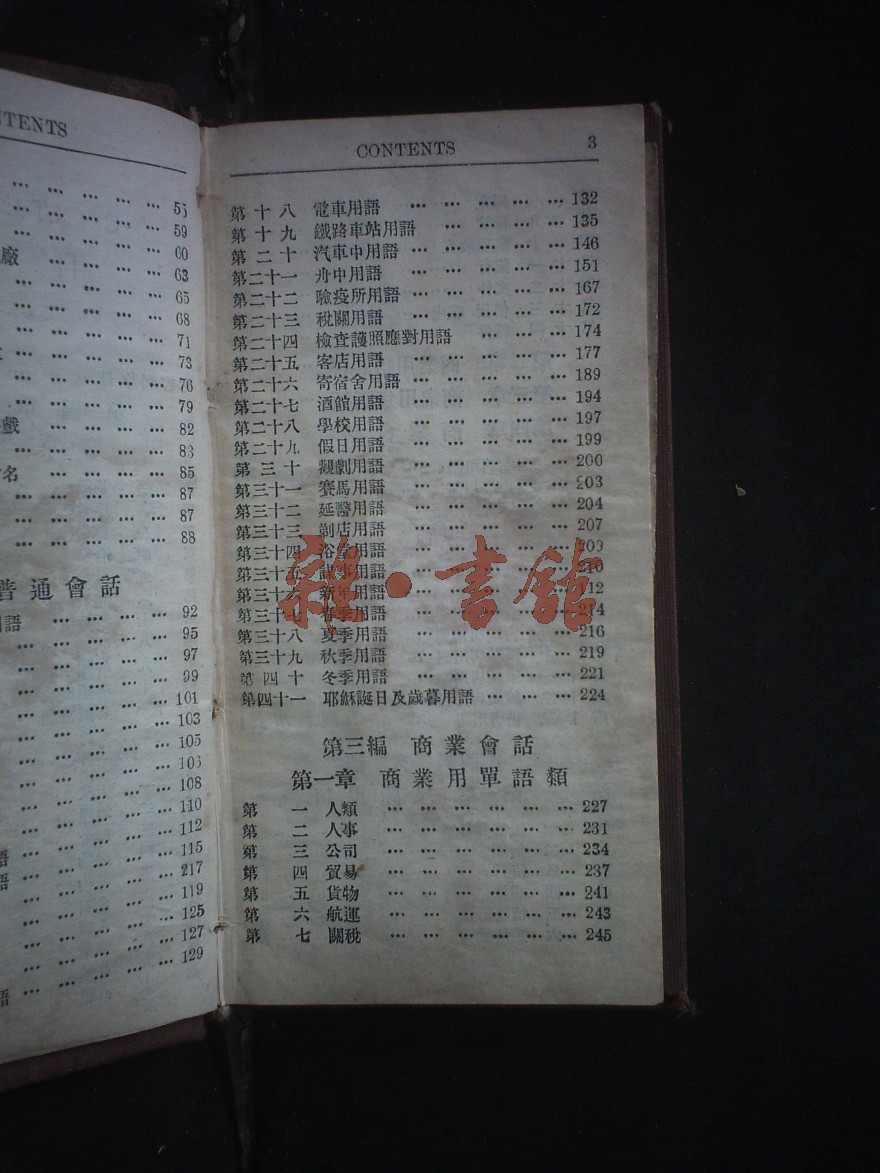 NTENTS
55
59
廠 60
63
65
68
71
73
76
79
戲 82
83
名 85
87
87
88
普通會話
語 92
95
97
99
101
103
105
106
108
110
112
語 115
語 217
119
125
127
129
語
CONTENTS 3
第十八 電車用語 … … … … … 132
第十九 鐵路車站用語 … … … … 135
第二十 汽車中用語 … … … … … 146
第二十一 舟中用語 … … … … … 151
第二十二 驗疫所用語 … … … … … 167
第二十三 稅關用語 … … … … … 172
第二十四 檢查護照應對用語 … … … 174
第二十五 客店用語 … … … … … 177
第二十六 寄宿舍用語 … … … … … 189
第二十七 酒館用語 … … … … … 194
第二十八 學校用語 … … … … … 197
第二十九 假日用語 … … … … … 199
第三十 觀劇用語 … … … … … 200
第三十一 賽馬用語 … … … … … 203
第三十二 延醫用語 … … … … … 204
第三十三 剃店用語 … … … … … 207
第三十四 浴堂用語 … … … … … 209
第三十五 用語 … … … … … 210
第三十六 新年用語 … … … … … 112
第三十七 春季用語 … … … … … 214
第三十八 夏季用語 … … … … … 216
第三十九 秋季用語 … … … … … 219
第四十 冬季用語 … … … … … 221
第四十一 耶穌誕日及歲暮用語 … … … 224
第三編 商業會話
第一章 商業用單語類
第一 人類 … … … … … … 227
第二 人事 … … … … … … 231
第三 公司 … … … … … … 234
第四 貿易 … … … … … … 237
第五 貨物 … … … … … … 241
第六 航運 … … … … … … 243
第七 關稅 … … … … … … 245
·書館